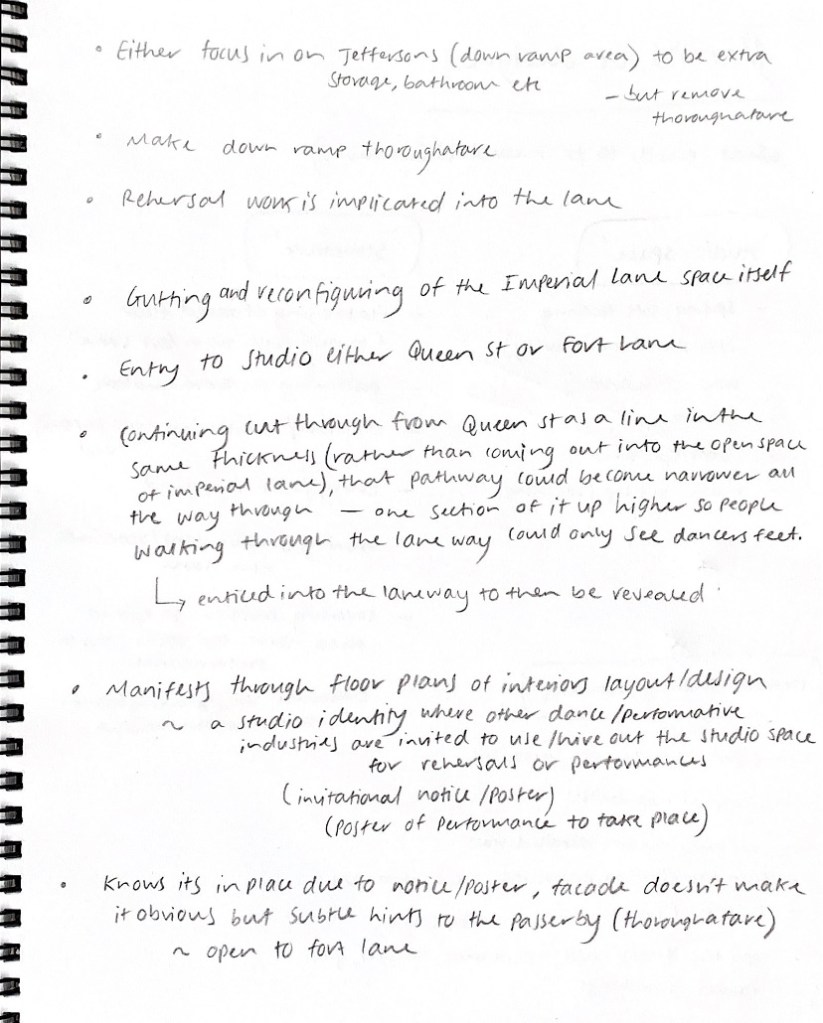 • Either focus in on Jeffersons (down ramp area) to be extra
storage, bathroom etc
– but remove
thoroughafare
• Make down ramp thoroughafare
• Rehersal work is implicated into the lane
• Gutting and reconfiguring of the Imperial Lane space itself
• Entry to studio either Queen st or Fort Lane
• Continuing cut through from Queen st as a line in the
same thickness (rather than coming out into the open space
of imperial lane), that pathway could become narrower all
the way through – one section of it up higher so people
walking through the lane way could only see dancers feet.
↳ enticed into the laneway to then be revealed
• Manifests through floor plans of interiors layout/design
~ a studio identity where other dance/performative
industries are invited to use/hire out the studio space
for rehersals or performances
(invitational notice/poster)
(poster of performance to take place)
• Knows its in place due to notice/poster, facade doesn't make
it obvious but subtle hints to the passerby (thoroughafare)
~ open to fort lane